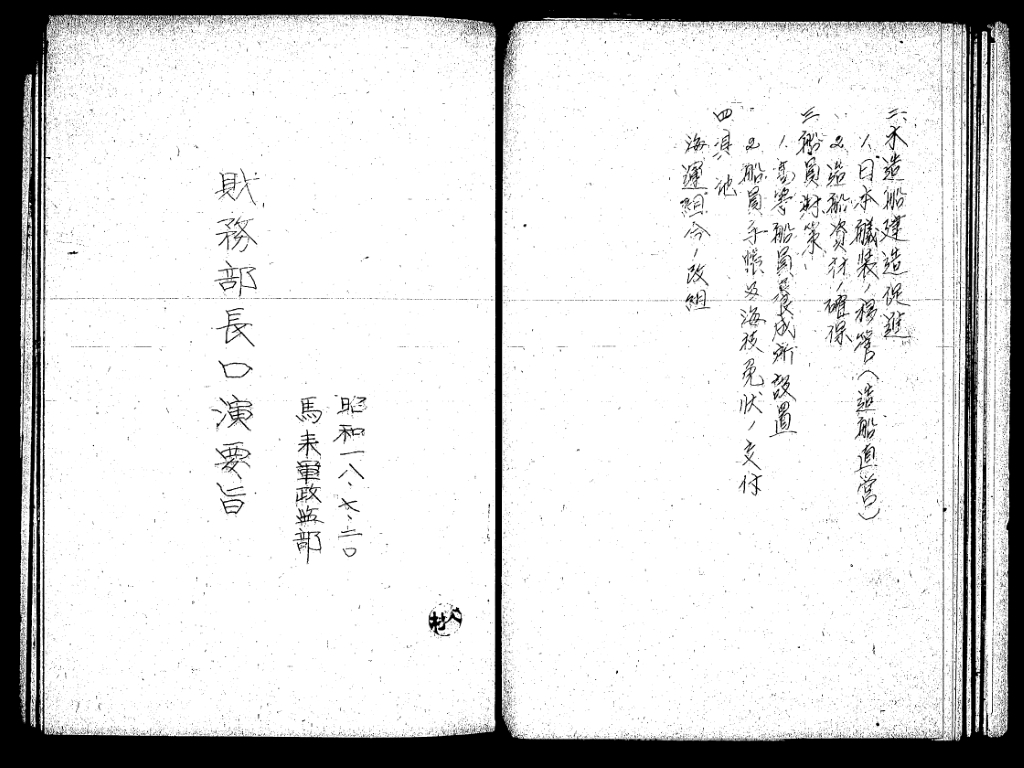 二、木造船建造促進
1、日本艤装ノ移管（造船直営）
2、造船資材ノ確保
三、船員対策
1、高等船員養成所設置
2、船員手帳及海技免状ノ交付
四、其ノ他
海運組合ノ改組
昭和一八、七、二〇
馬来軍政監部
財務部長口演要旨